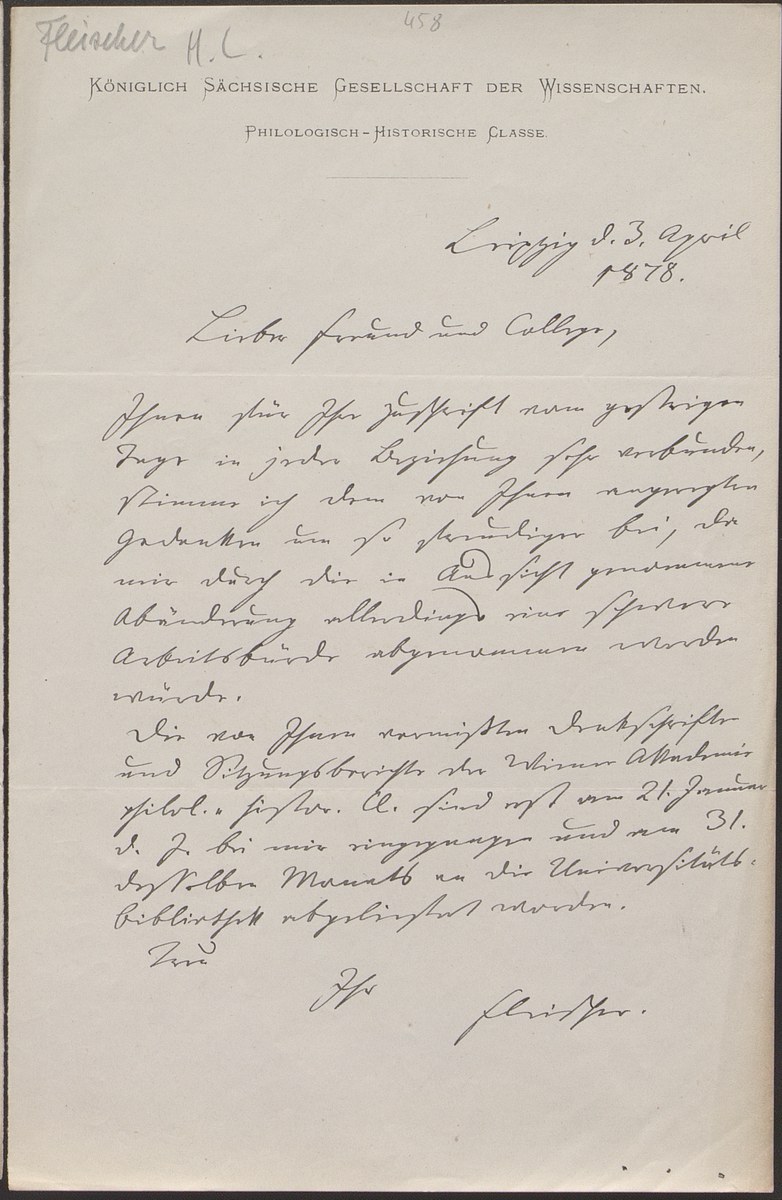 Fleischer H. L.
458
Königlich Sächsische Gesellschaft der Wissenschaften.
Philologisch-Historische Classe.
Leipzig d. 3. April
1878.
Lieber Freund und College,
Ihnen für Ihre Zuschrift vom gestrigen
Tage in jeder Beziehung sehr verbunden,
stimme ich dem von Ihnen angeregten
Gedanken um so freudiger bei, da
mir durch die in Aussicht genommene
Abänderung allerdings eine schwere
Arbeitsbürde abgenommen werden
würde.
Die von Ihnen vermißten Denkschriften
und Sitzungsberichte der Wiener Akademie
philol. u histor. Cl. sind erst am 21. Januar
d. J. bei mir eingegangen und am 31.
desselben Monats an die Universitäts-
bibliothek abgeliefert worden.
Treu
Ihr
Fleischer.